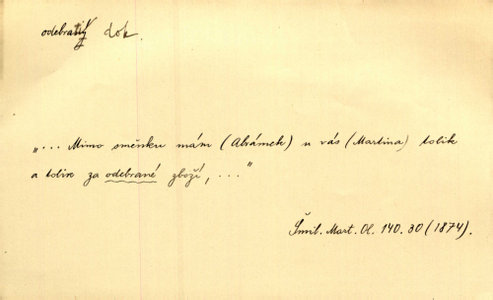 odebratiti dok.
„... Mimo směnku mám (Abrámek) u vás (Martina) tolik
a tolik za odebrané zboží, ..."
Šmil. Mart. Ol. 140. 30 (1874).